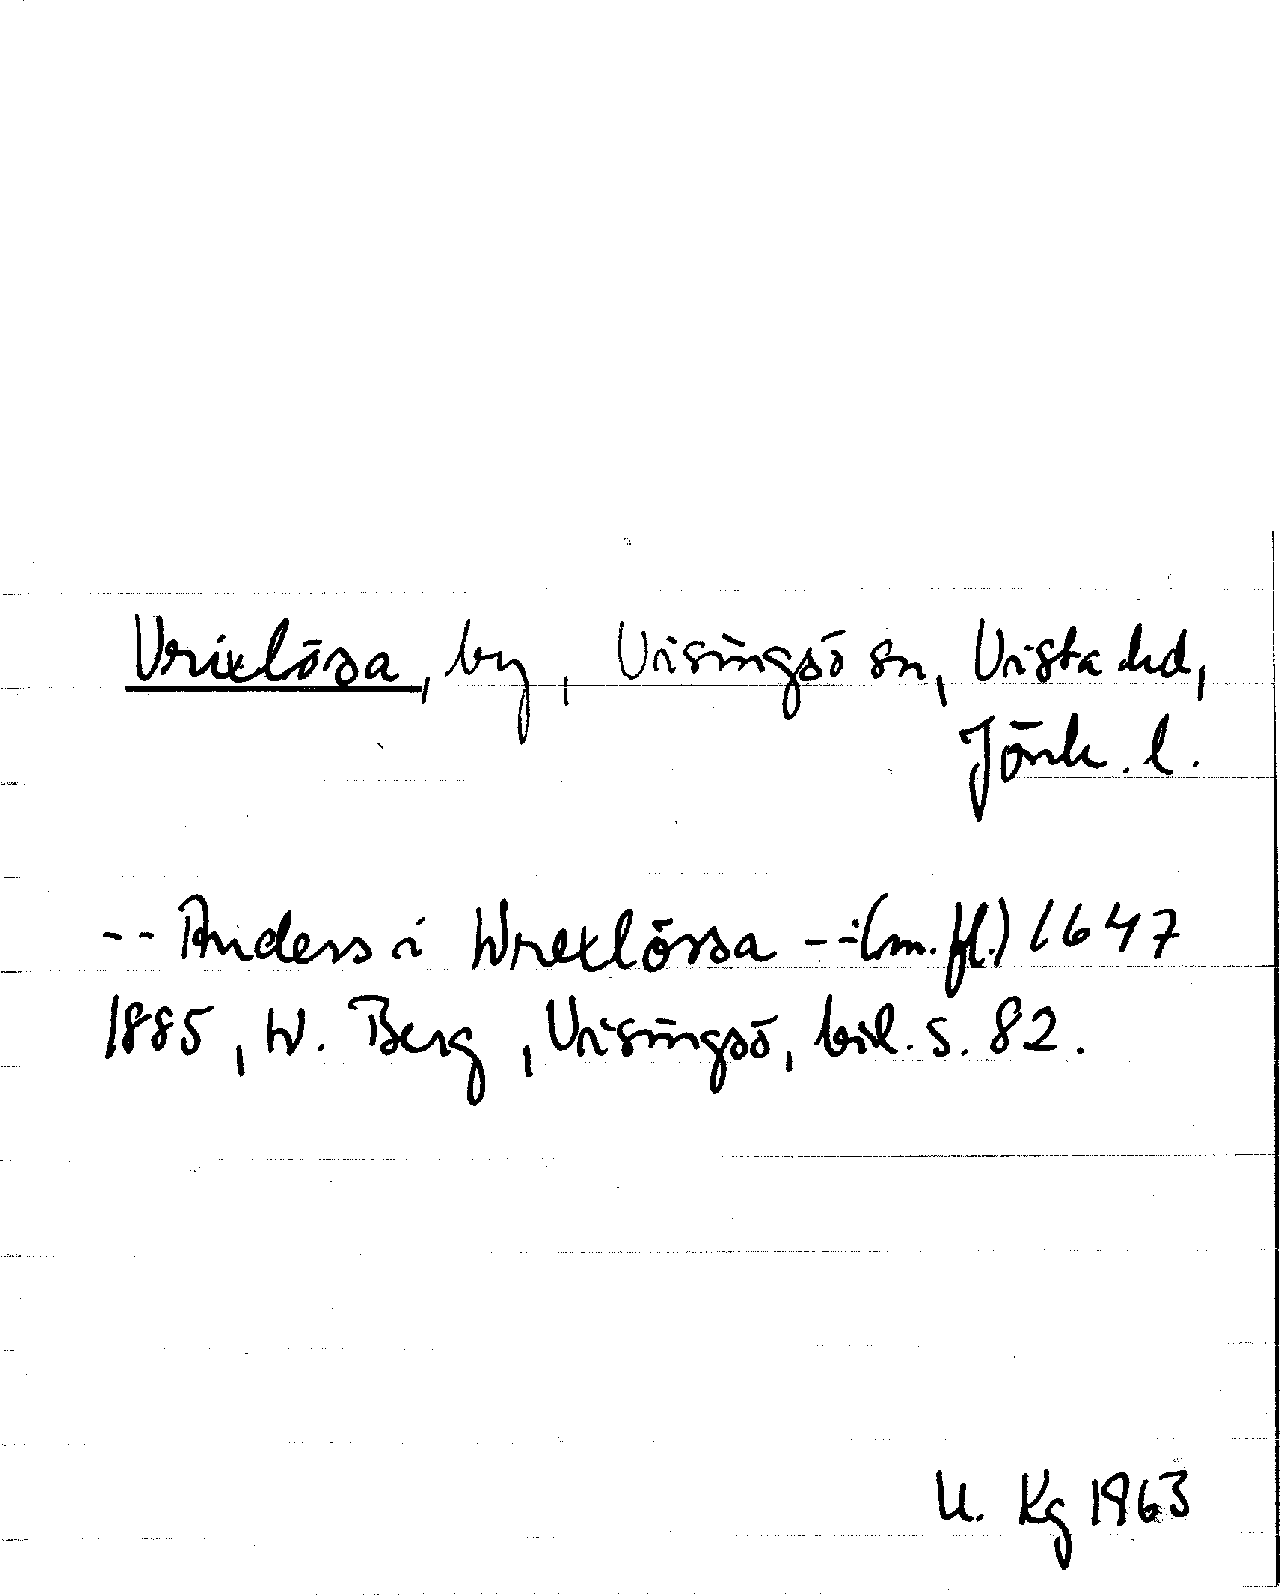 Vrixlösa, by, Visingsö sn, Vista hd,
Jönk. l.
-- Anders i Wrexlössa -- (m. fl.) 1647
1885, W. Berg, Visingsö, bil. s. 82.
U. Kg 1963